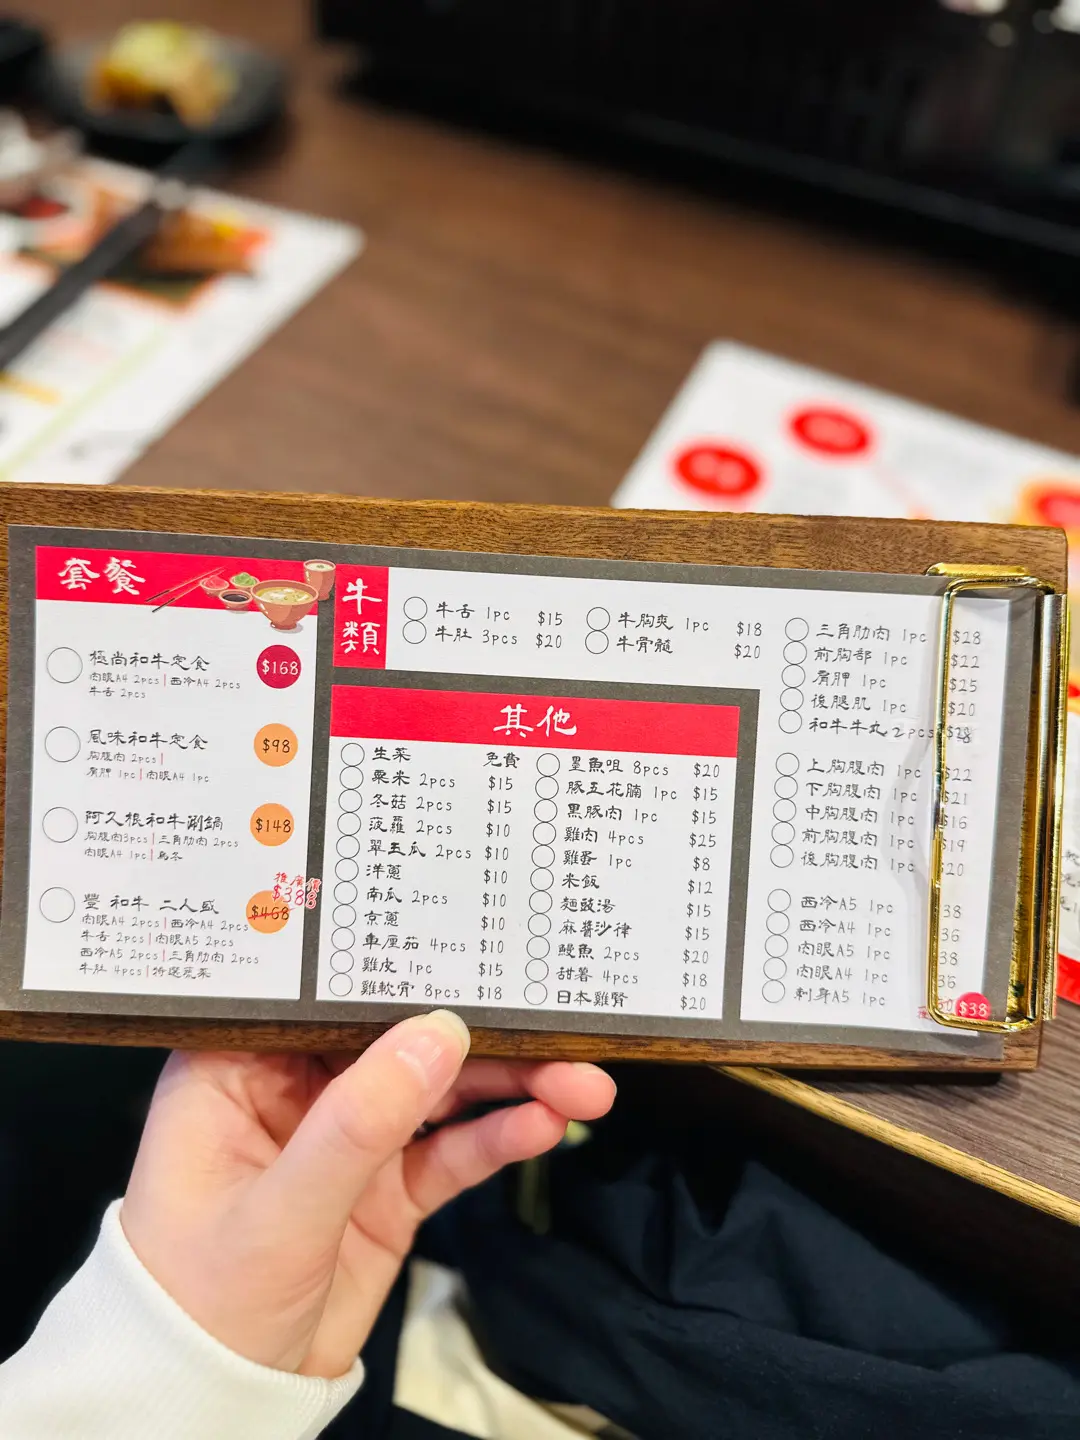 套餐
極尚和牛定食 $168
肉眼A4 2pcs | 西冷A4 2pcs
牛舌 2pcs
風味和牛定食 $98
胸腹肉 2pcs |
肩胛 1pc | 肉眼A4 1pc
阿久根和牛涮鍋 $148
胸腹肉3pcs | 三角肋肉 2pcs
肉眼A4 1pc | 烏冬
推廣價
$388
豐 和牛 二人盛 $468
肉眼A4 2pcs | 西冷A4 2pcs
牛舌 2pcs | 肉眼A5 2pcs
西冷A5 2pcs | 三角肋肉 2pcs
牛肚 4pcs | 特選蔬菜
牛類
牛舌 1pc $15
牛肚 3pcs $20
牛胸爽 1pc $18
牛骨髓 $20
三角肋肉 1pc $28
前胸部 1pc $22
肩胛 1pc $25
後腿肌 1pc $20
和牛牛丸 2pcs
上胸腹肉 1pc $22
下胸腹肉 1pc $21
中胸腹肉 1pc $16
前胸腹肉 1pc $19
後胸腹肉 1pc $20
西冷A5 1pc 38
西冷A4 1pc 36
肉眼A5 1pc 38
肉眼A4 1pc 36
刺身A5 1pc $38
其他
生菜 免費
粟米 2pcs $15
冬菇 2pcs $15
菠蘿 2pcs $10
翠玉瓜 2pcs $10
洋蔥 $10
南瓜 2pcs $10
京蔥 $10
車厘茄 4pcs $10
雞皮 1pc $15
雞軟骨 8pcs $18
墨魚咀 8pcs $20
豚五花腩 1pc $15
黑豚肉 1pc $15
雞肉 4pcs $25
雞蛋 1pc $8
米飯 $12
麵豉湯 $15
麻醬沙律 $15
鰻魚 2pcs $20
甜薯 4pcs $18
日本雞腎 $20